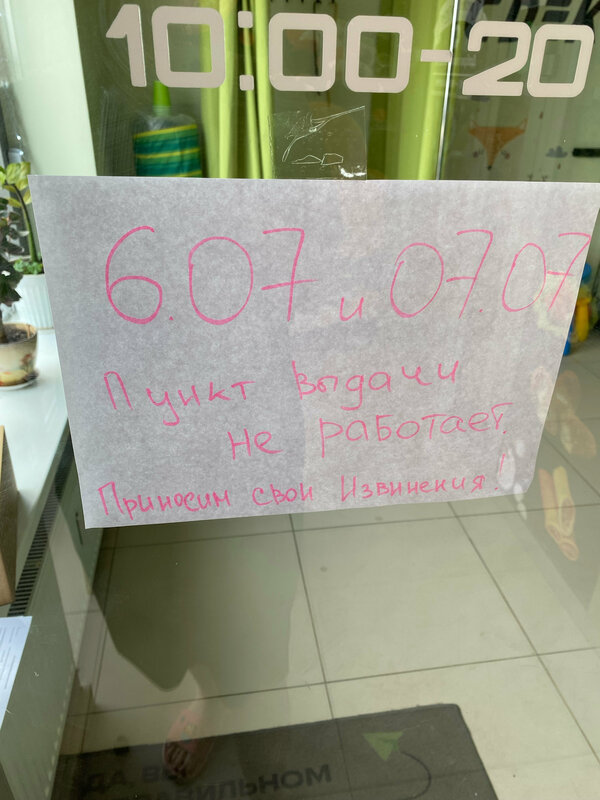 10:00-20
6.07 и 07.07
Пункт выдачи
не работает.
Приносим свои Извинения!
ДА, ВЫ